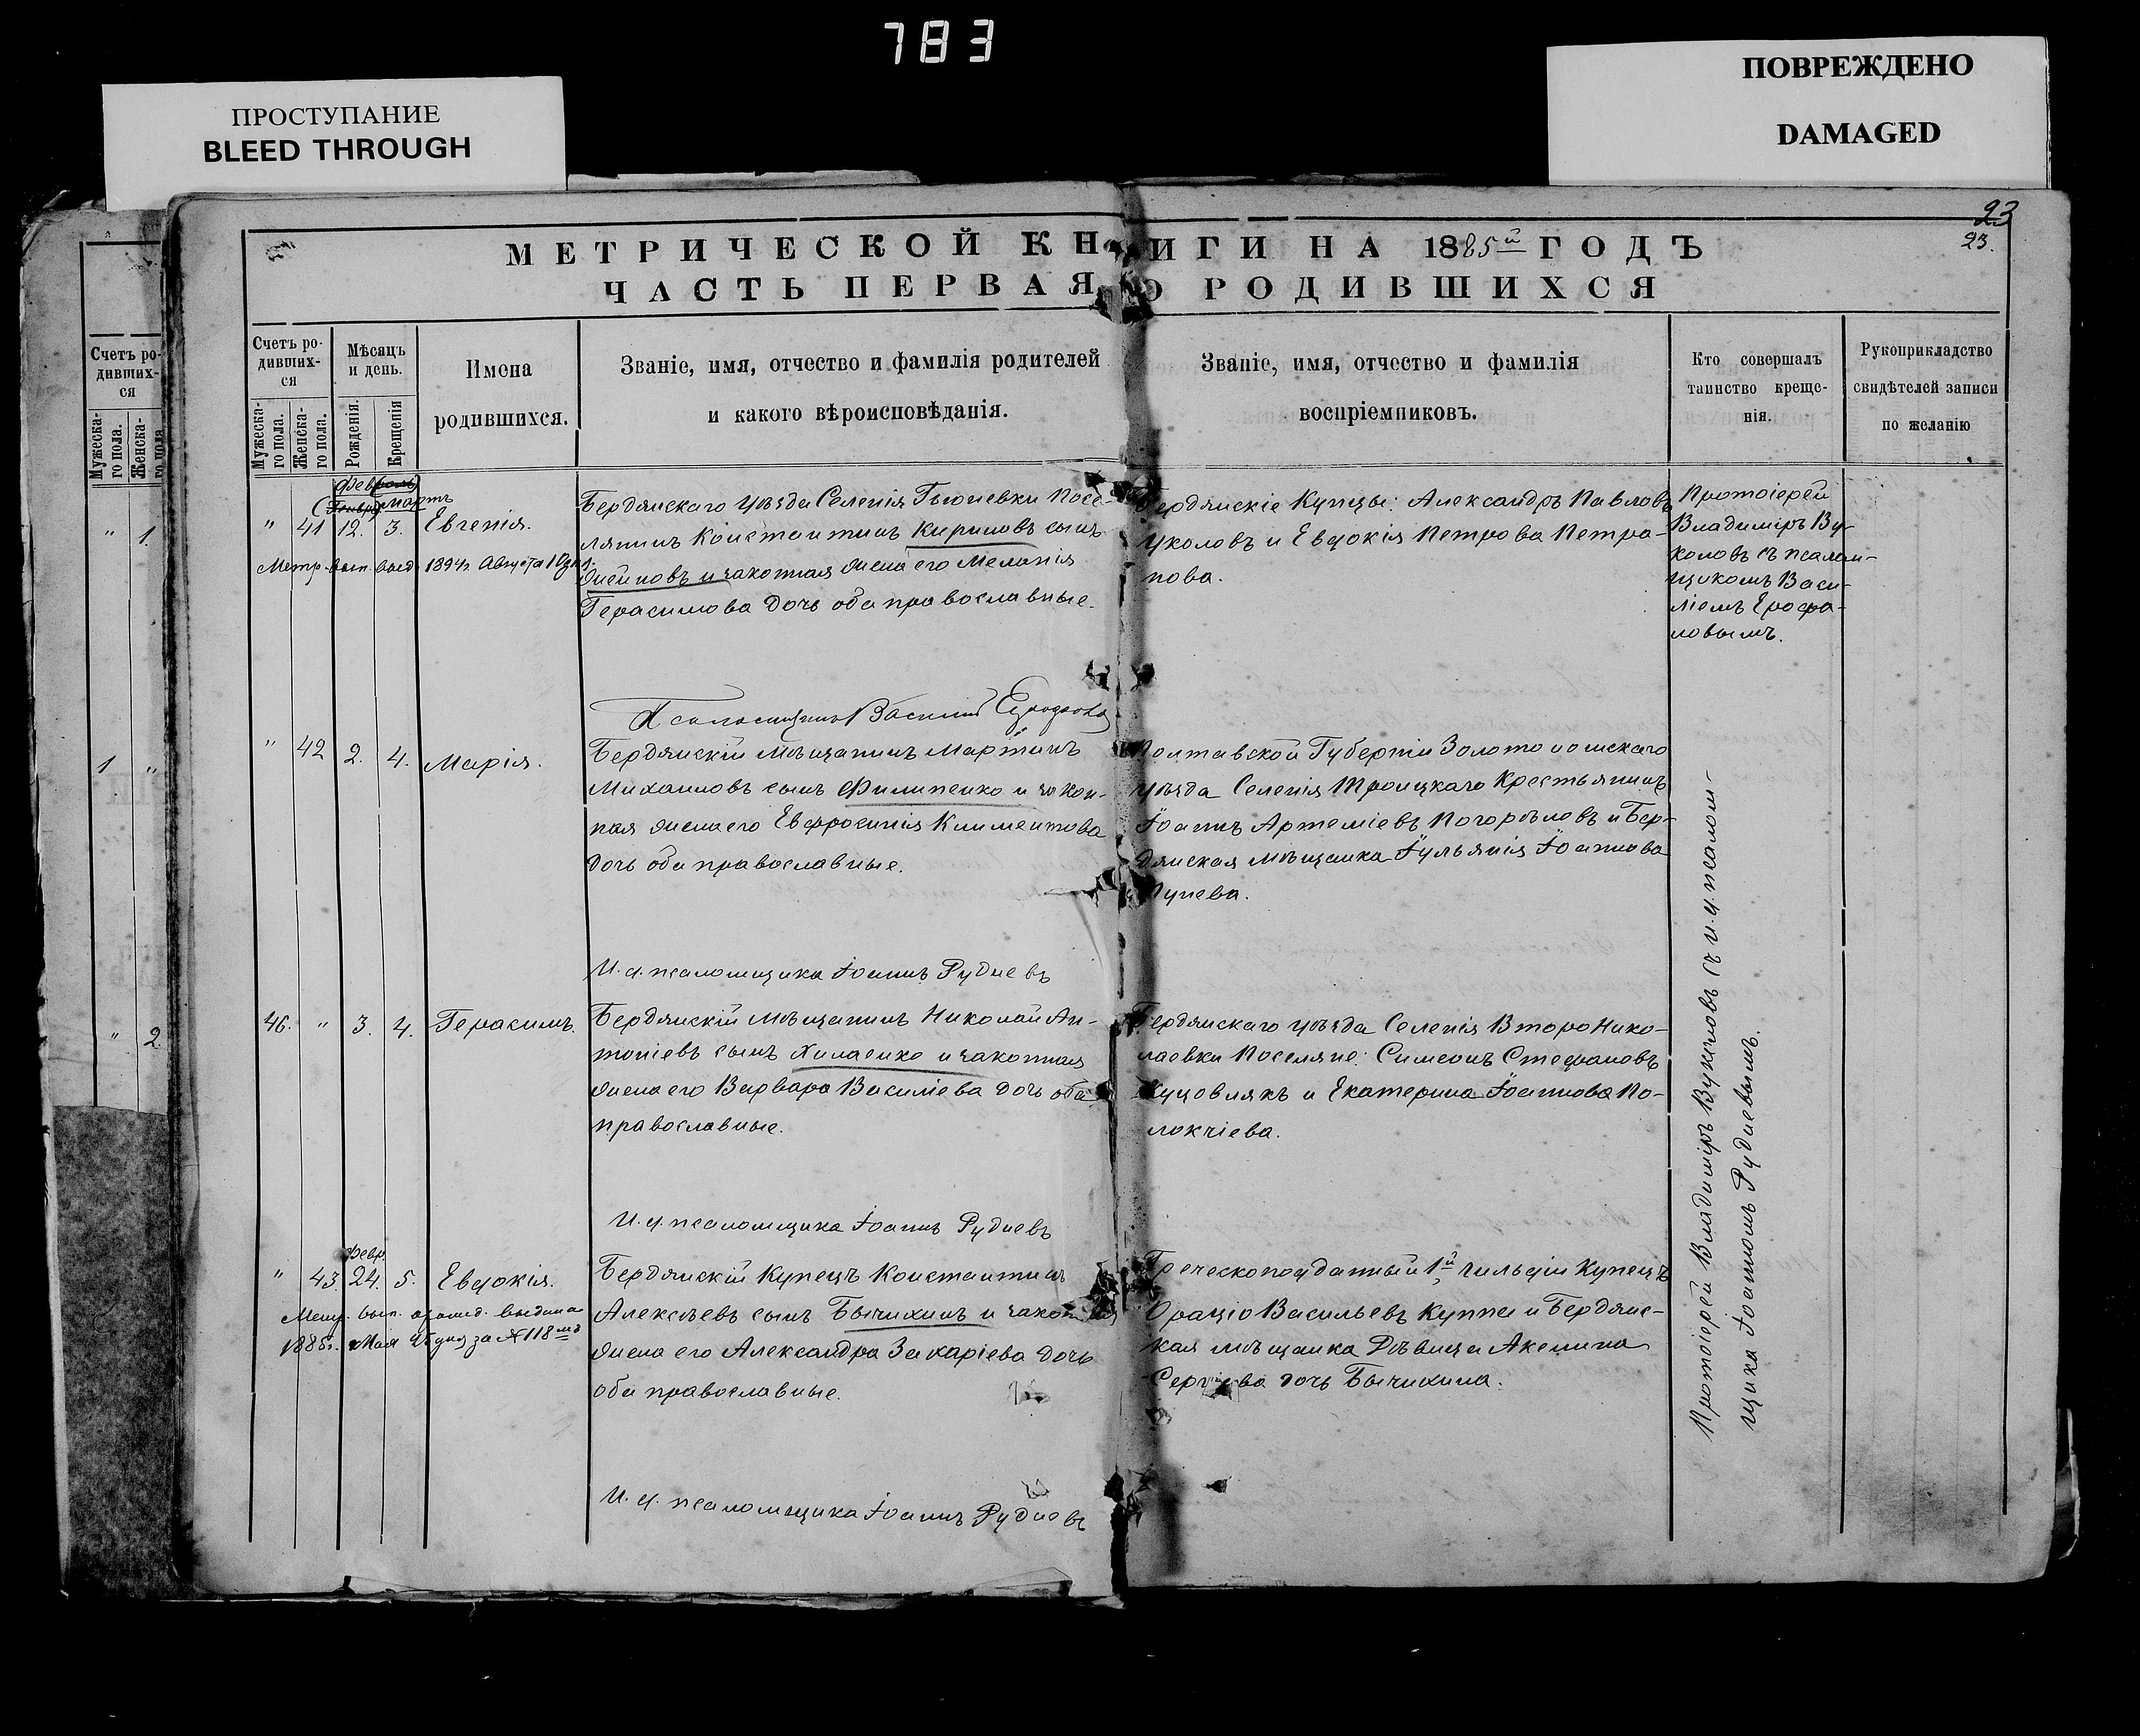 783
ПРОСТУПАНИЕ
BLEED THROUGH
ПОВРЕЖДЕНО
DAMAGED
23
23.
МЕТРИЧЕСКОЙ КНИГИ НА 1885й ГОДЪ
ЧАСТЬ ПЕРВАЯ О РОДИВШИХСЯ
Счетъ ро-
дивших-
ся
Мужеска-
го пола.
Женска-
го пола
" 1.
1 "
" 2
Счетъ ро-
дивших-
ся
Мужеска-
го пола.
Женска-
го пола.
Мѣсяцъ
и день.
Рожденія.
Крещенія
Имена
родившихся.
Званіе, имя, отчество и фамилія родителей
и какого вѣроисповѣданія.
Званіе, имя, отчество и фамилія
воспріемниковъ.
Кто совершалъ
таинство креще-
нія.
Рукоприкладство
свидѣтелей записи
по желанію
мартъ
" 41 12. 3. Евгенія.
Метр. вып. выд. 1894г. Августа
Бердянскаго уѣзда Селенія Гюневки Посе-
лянинъ Константинъ Кириловъ сынъ
и законная жена его Меланія
Герасимова дочь оба православные.
Бердянскіе Купцы: Александръ Павловъ
Уколовъ и Евдокія Петрова Петра-
нова.
Протоіерей
Владиміръ Ву-
коловъ съ псалом-
щикомъ Васи-
ліемъ Ерофа-
ловымъ.
Псаломщикъ Василій
" 42 2. 4. Марія.
Бердянскій мѣщанинъ Мартинъ
Михаиловъ сынъ Филипенко и закон-
ная жена его Евфросинія Климентова
дочь оба православные.
Полтавской Губерніи Золотоношскаго
уѣзда Селенія Троицкаго Крестьянинъ
Іоаннъ Артеміевъ Погорѣловъ и Бер-
дянская мѣщанка Іульянія Іоаннова
И. д. псаломщика Іоаннъ Рудневъ
46. " 3. 4. Герасимъ.
Бердянскій мѣщанинъ Николай Ан-
тоніевъ сынъ Хиласико и законная
жена его Варвара Василіева дочь оба
православные.
Бердянскаго уѣзда Селенія Второ Нико-
лаевки Поселяне: Симеонъ Стефановъ
и Екатерина Іоаннова По-
локчіева.
И. д. псаломщика Іоаннъ Рудневъ
Февр.
" 43. 24. 5. Евдокія.
Метр. вып. выдана
1885г. Мая 25 дня за № 118мъ
Бердянскій Купецъ Константинъ
Алексѣевъ сынъ Бычихинъ и законная
жена его Александра Захаріева дочь
оба православные.
Греческоподданный 1й гильдіи Купецъ
Ораціо Васильевъ Куппа и Бердянс-
кая мѣщанка Дѣвица Акелина
Сергіева дочь Бычихина.
И. д. псаломщика Іоаннъ Рудневъ
Протоіерей Владиміръ Вуколовъ съ и. д. псалом-
щика Іоанномъ Рудневымъ.